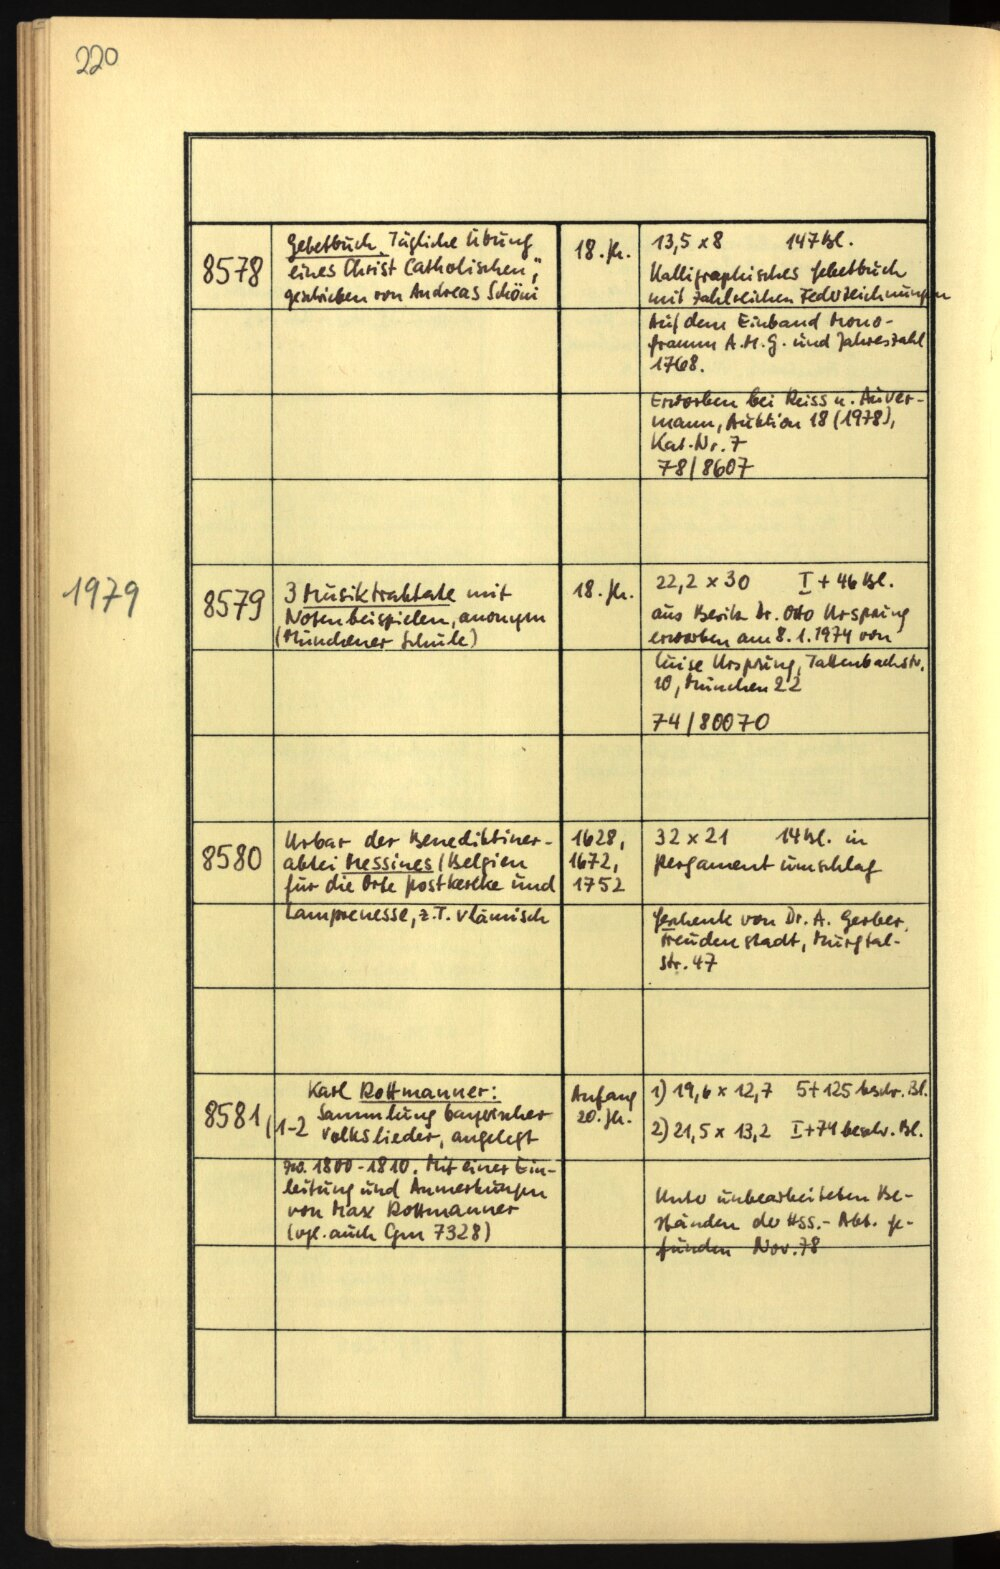 220
8578
Gebetbuch „Tägliche Übung
eines Christ Catholischen",
geschrieben von Andreas Schöni
18. Jh.
13,5 x 8 147 Bl.
Kalligraphisches Gebetbuch
mit zahlreichen Federzeichnungen
Auf dem Einband Mono-
gramm A.M.G. und Jahreszahl
1768.
Erworben bei Reiss u. Auver-
mann, Auktion 18 (1978),
Kat.-Nr. 7
78/8607
1979
8579
3 Musiktraktate mit
Notenbeispielen, anonym
(Münchener Schule)
18. Jh.
22,2 x 30 I + 46 Bl.
aus Besitz Dr. Otto Ursprung
erworben am 8.1.1974 von
Luise Ursprung, Tattenbachstr.
10, München 22
74/80070
8580
Urbar der Benediktiner-
abtei Messines (Belgien
für die Orte postkercke und
Lamprenesse, z.T. vlämisch
1628,
1672,
1752
32 x 21 14 Bl. in
Pergamentumschlag
Geschenk von Dr. A. Gerber,
Freudenstadt, Murgtal-
str. 47
8581/1-2
Karl Rottmanner:
Sammlung bayerischer
Volkslieder, angelegt
zw. 1800-1810. Mit einer Ein-
leitung und Anmerkungen
von Max Rottmanner
(vgl. auch Cgm 7328)
Anfang
20. Jh.
1) 19,6 x 12,7 5+125 beschr. Bl.
2) 21,5 x 13,2 I+74 beschr. Bl.
Unter unbearbeiteten Be-
ständen der Hss.-Abt. ge-
funden Nov. 78